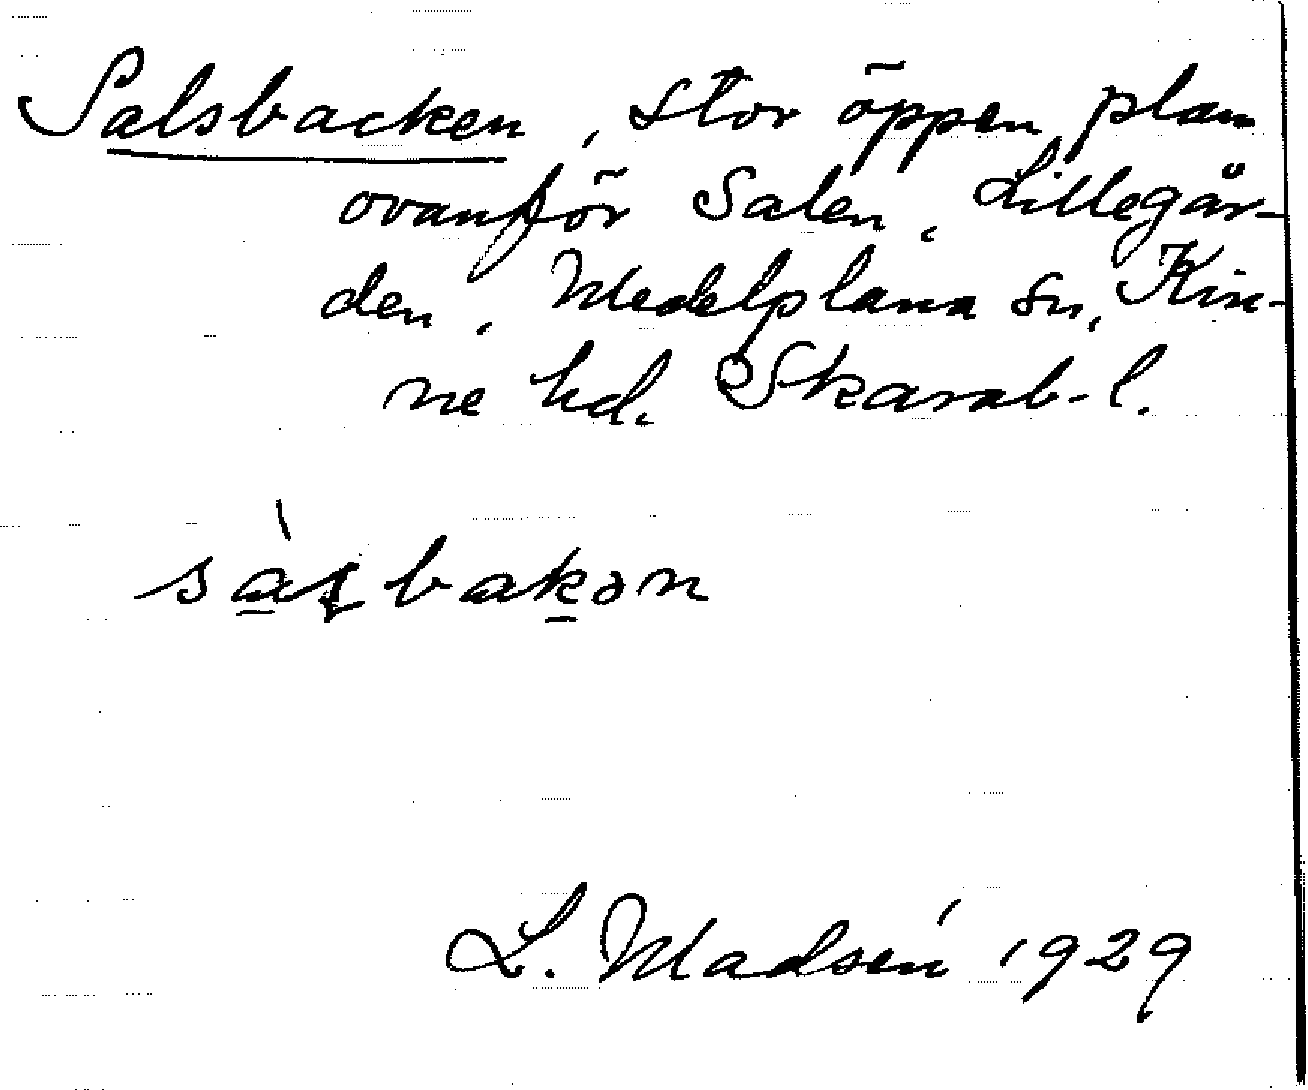 Salsbacken, stor öppen plan
ovanför Salen, Lillegår-
den, Medelplana sn, Kin-
ne hd. Skarab-l.
bakən
L. Madsén 1929